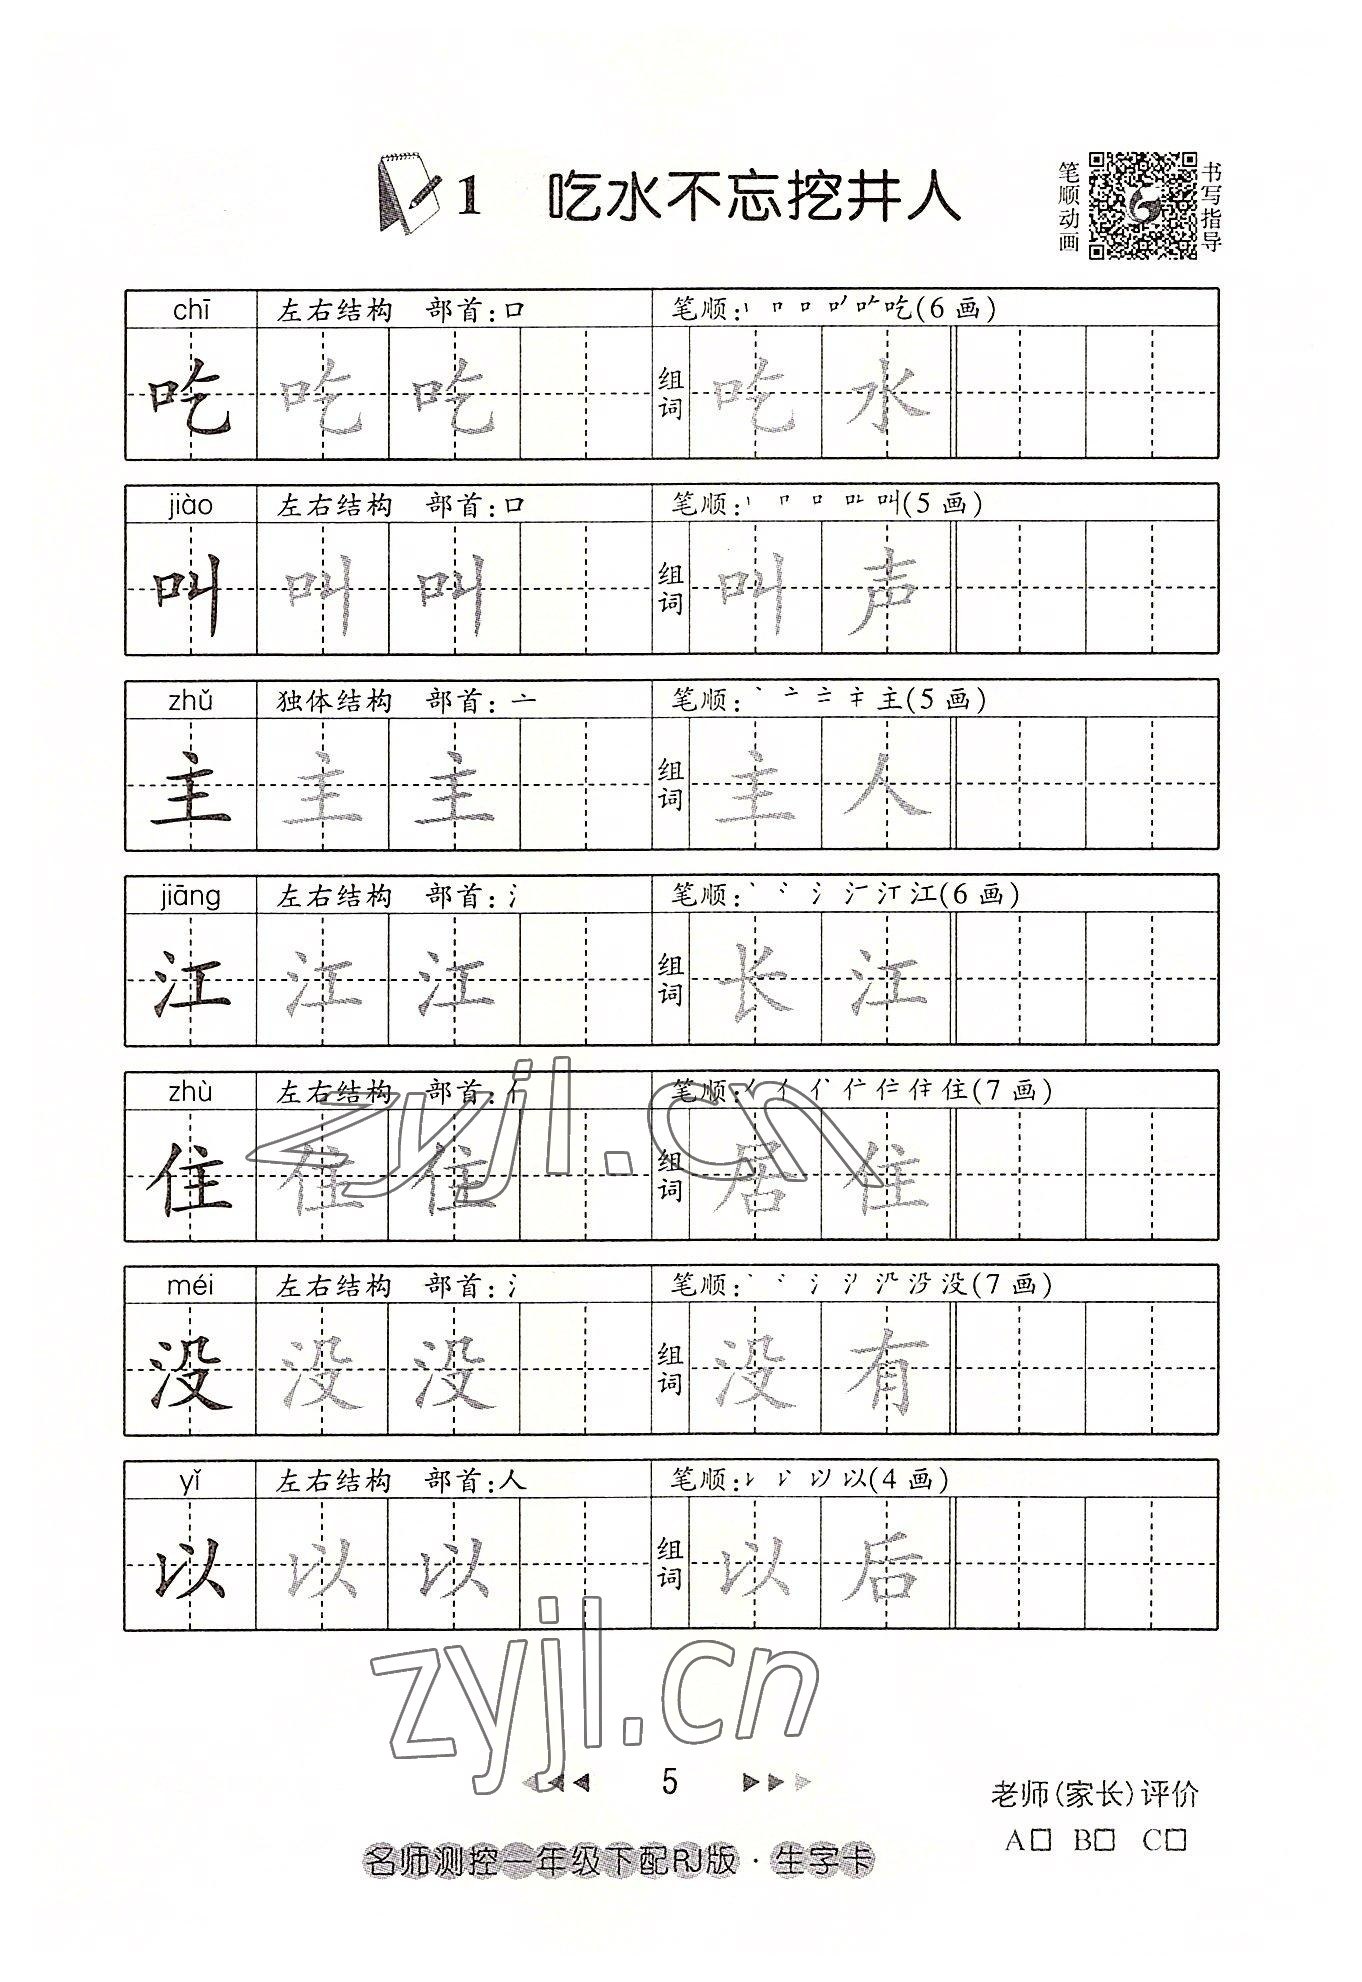 1 吃水不忘挖井人
笔顺动画
书写指导
chī 左右结构 部首:口 笔顺: 吃(6画)
吃 吃 吃 组词 吃水
jiào 左右结构 部首:口 笔顺: 叫(5画)
叫 叫 叫 组词 叫声
zhǔ 独体结构 部首:亠 笔顺:丶 亠 主(5画)
主 主 主 组词 主人
jiāng 左右结构 部首:氵 笔顺:丶 冫 氵 江(6画)
江 江 江 组词 长江
zhù 左右结构 部首:亻 笔顺:丿 亻 住(7画)
住 住 住 组词 居住
méi 左右结构 部首:氵 笔顺:丶 冫 氵 没(7画)
没 没 没 组词 没有
yǐ 左右结构 部首:人 笔顺: 以(4画)
以 以 以 组词 以后
zyjl.cn
zyjl.cn
5
老师(家长)评价
A□ B□ C□
名师测控一年级下配RJ版·生字卡